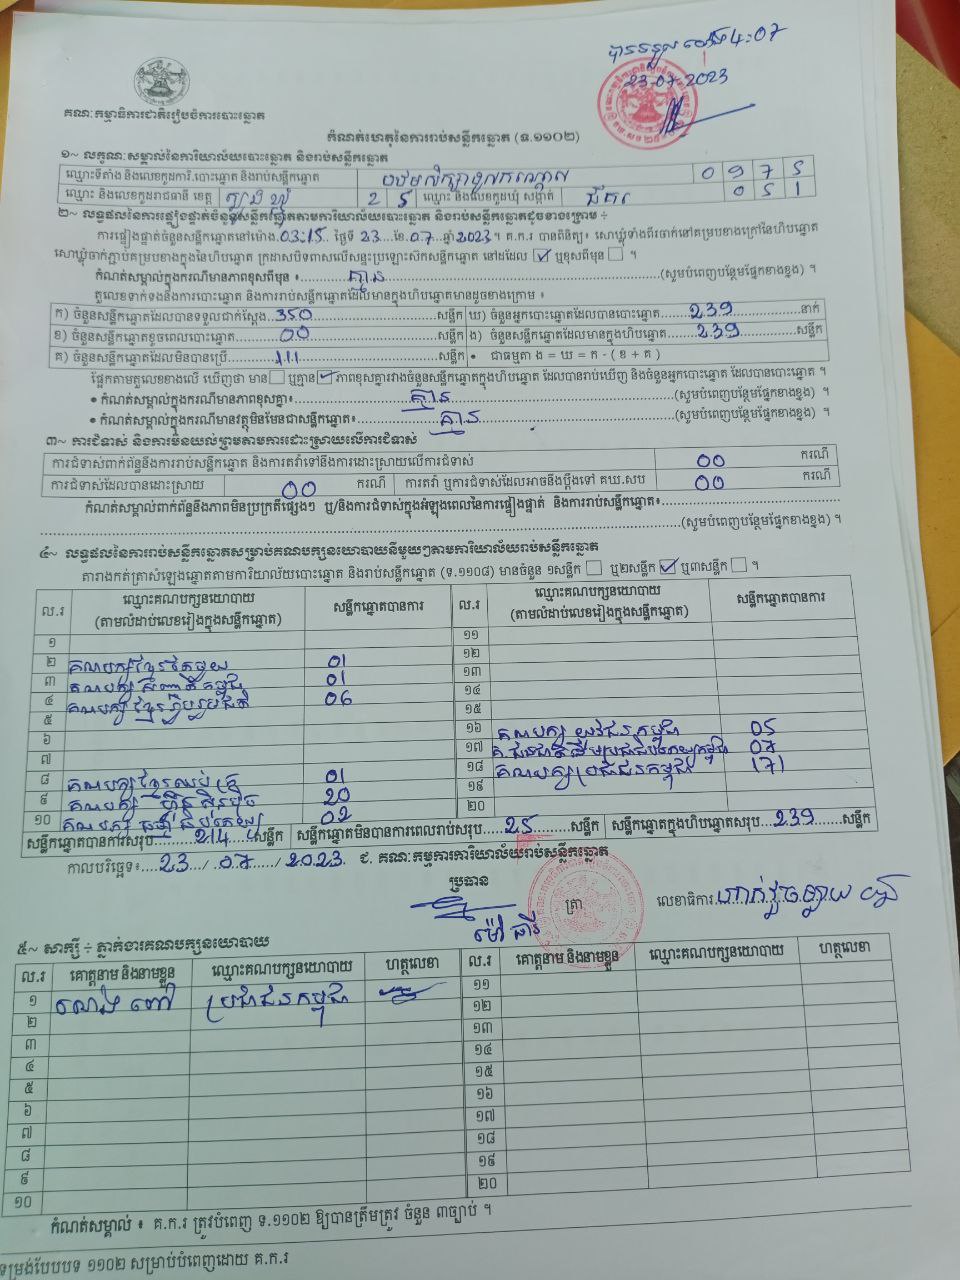 បានទទួល ម៉ោង 4:07
23.07.2023
គណៈកម្មាធិការជាតិរៀបចំការបោះឆ្នោត
កំណត់ហេតុនៃការរាប់សន្លឹកឆ្នោត (ទ.១១០២)
១~ លក្ខណៈសម្គាល់នៃការិយាល័យបោះឆ្នោត និងរាប់សន្លឹកឆ្នោត
ឈ្មោះទីតាំង និងលេខកូដការិ.បោះឆ្នោត និងរាប់សន្លឹកឆ្នោត 0 9 7 5
ឈ្មោះ និងលេខកូដរាជធានី ខេត្ត ត្បូងឃ្មុំ 2 5 ឈ្មោះ និងលេខកូដឃុំ សង្កាត់ ជីគរ 0 5 1
២~ លទ្ធផលនៃការផ្ទៀងផ្ទាត់ចំនួនសន្លឹកឆ្នោតតាមការិយាល័យបោះឆ្នោត និងរាប់សន្លឹកឆ្នោតដូចខាងក្រោម ÷
ការផ្ទៀងផ្ទាត់ចំនួនសន្លឹកឆ្នោតនៅម៉ោង 03:15 ថ្ងៃទី 23 ខែ 07 ឆ្នាំ 2023។ គ.ក.រ បានពិនិត្យ៖ សោឃ្លុំទាំងពីរចាក់នៅគម្របខាងក្រៅនៃហិបឆ្នោត
សោឃ្លុំចាក់ភ្ជាប់គម្របខាងក្នុងនៃហិបឆ្នោត ក្រដាសបិទពាសលើសន្ទះប្រឡោះស៊ីកសន្លឹកឆ្នោត នៅដដែល ☑ ឬខុសពីមុន ☐ ។
កំណត់សម្គាល់ក្នុងករណីមានភាពខុសពីមុន ៖ គ្មាន (សូមបំពេញបន្ថែមផ្នែកខាងខ្នង) ។
តួលេខទាក់ទងនឹងការបោះឆ្នោត និងការរាប់សន្លឹកឆ្នោតដែលមានក្នុងហិបឆ្នោតមានដូចខាងក្រោម ៖
ក) ចំនួនសន្លឹកឆ្នោតដែលបានទទួលជាក់ស្តែង 350 សន្លឹក ឃ) ចំនួនអ្នកបោះឆ្នោតដែលបានបោះឆ្នោត 239 នាក់
ខ) ចំនួនសន្លឹកឆ្នោតខូចពេលបោះឆ្នោត 00 សន្លឹក ង) ចំនួនសន្លឹកឆ្នោតដែលមានក្នុងហិបឆ្នោត 239 សន្លឹក
គ) ចំនួនសន្លឹកឆ្នោតដែលមិនបានប្រើ 111 សន្លឹក • ជាធម្មតា ង = ឃ = ក - ( ខ + គ )
ផ្អែកតាមតួលេខខាងលើ ឃើញថា មាន ☐ ឬគ្មាន ☑ ភាពខុសគ្នារវាងចំនួនសន្លឹកឆ្នោតក្នុងហិបឆ្នោត ដែលបានរាប់ឃើញ និងចំនួនអ្នកបោះឆ្នោត ដែលបានបោះឆ្នោត ។
• កំណត់សម្គាល់ក្នុងករណីមានភាពខុសគ្នា៖ គ្មាន (សូមបំពេញបន្ថែមផ្នែកខាងខ្នង) ។
• កំណត់សម្គាល់ក្នុងករណីមានវត្ថុមិនមែនជាសន្លឹកឆ្នោត៖ គ្មាន (សូមបំពេញបន្ថែមផ្នែកខាងខ្នង) ។
៣~ ការជំទាស់ និងការមិនយល់ព្រមតាមការដោះស្រាយលើការជំទាស់
ការជំទាស់ពាក់ព័ន្ធនឹងការរាប់សន្លឹកឆ្នោត និងការតវ៉ាទៅនឹងការដោះស្រាយលើការជំទាស់ 00 ករណី
ការជំទាស់ដែលបានដោះស្រាយ 00 ករណី ការតវ៉ា ឬការជំទាស់ដែលអាចនឹងប្តឹងទៅ គឃ.សប 00 ករណី
កំណត់សម្គាល់ពាក់ព័ន្ធនឹងភាពមិនប្រក្រតីផ្សេងៗ ឬ/និងការជំទាស់ក្នុងអំឡុងពេលនៃការផ្ទៀងផ្ទាត់ និងការរាប់សន្លឹកឆ្នោត៖
(សូមបំពេញបន្ថែមផ្នែកខាងខ្នង) ។
៤~ លទ្ធផលនៃការរាប់សន្លឹកឆ្នោតសម្រាប់គណបក្សនយោបាយនីមួយៗតាមការិយាល័យរាប់សន្លឹកឆ្នោត
តារាងកត់ត្រាសំឡេងឆ្នោតតាមការិយាល័យបោះឆ្នោត និងរាប់សន្លឹកឆ្នោត (ទ.១១០៨) មានចំនួន ១សន្លឹក ☐ ឬ២សន្លឹក ☑ ឬ៣សន្លឹក ☐ ។
ល.រ ឈ្មោះគណបក្សនយោបាយ (តាមលំដាប់លេខរៀងក្នុងសន្លឹកឆ្នោត) សន្លឹកឆ្នោតបានការ ល.រ ឈ្មោះគណបក្សនយោបាយ (តាមលំដាប់លេខរៀងក្នុងសន្លឹកឆ្នោត) សន្លឹកឆ្នោតបានការ
១ ១១
២ គណបក្សខ្មែរតែមួយ 01 ១២
៣ 01 ១៣
៤ 06 ១៤
៥ ១៥
៦ ១៦ គណបក្ស យុវជនកម្ពុជា 05
៧ ១៧ 07
៨ គណបក្សខ្មែរឈប់ក្រ 01 ១៨ គណបក្សប្រជាជនកម្ពុជា 171
៩ គណបក្ស ហ៊្វុនស៊ិនប៉ិច 20 ១៩
១០ 02 ២០
សន្លឹកឆ្នោតបានការសរុប 214 សន្លឹក សន្លឹកឆ្នោតមិនបានការពេលរាប់សរុប 25 សន្លឹក សន្លឹកឆ្នោតក្នុងហិបឆ្នោតសរុប 239 សន្លឹក
កាលបរិច្ឆេទ៖ 23 / 07 / 2023 ជ. គណៈកម្មការការិយាល័យរាប់សន្លឹកឆ្នោត
ប្រធាន ត្រា លេខាធិការ
៥~ សាក្សី ÷ ភ្នាក់ងារគណបក្សនយោបាយ
ល.រ គោត្តនាម និងនាមខ្លួន ឈ្មោះគណបក្សនយោបាយ ហត្ថលេខា ល.រ គោត្តនាម និងនាមខ្លួន ឈ្មោះគណបក្សនយោបាយ ហត្ថលេខា
១ ប្រជាជនកម្ពុជា ១១
២ ១២
៣ ១៣
៤ ១៤
៥ ១៥
៦ ១៦
៧ ១៧
៨ ១៨
៩ ១៩
១០ ២០
កំណត់សម្គាល់ ៖ គ.ក.រ ត្រូវបំពេញ ទ.១១០២ ឱ្យបានត្រឹមត្រូវ ចំនួន ៣ច្បាប់ ។
ទម្រង់បែបបទ ១១០២ សម្រាប់បំពេញដោយ គ.ក.រ